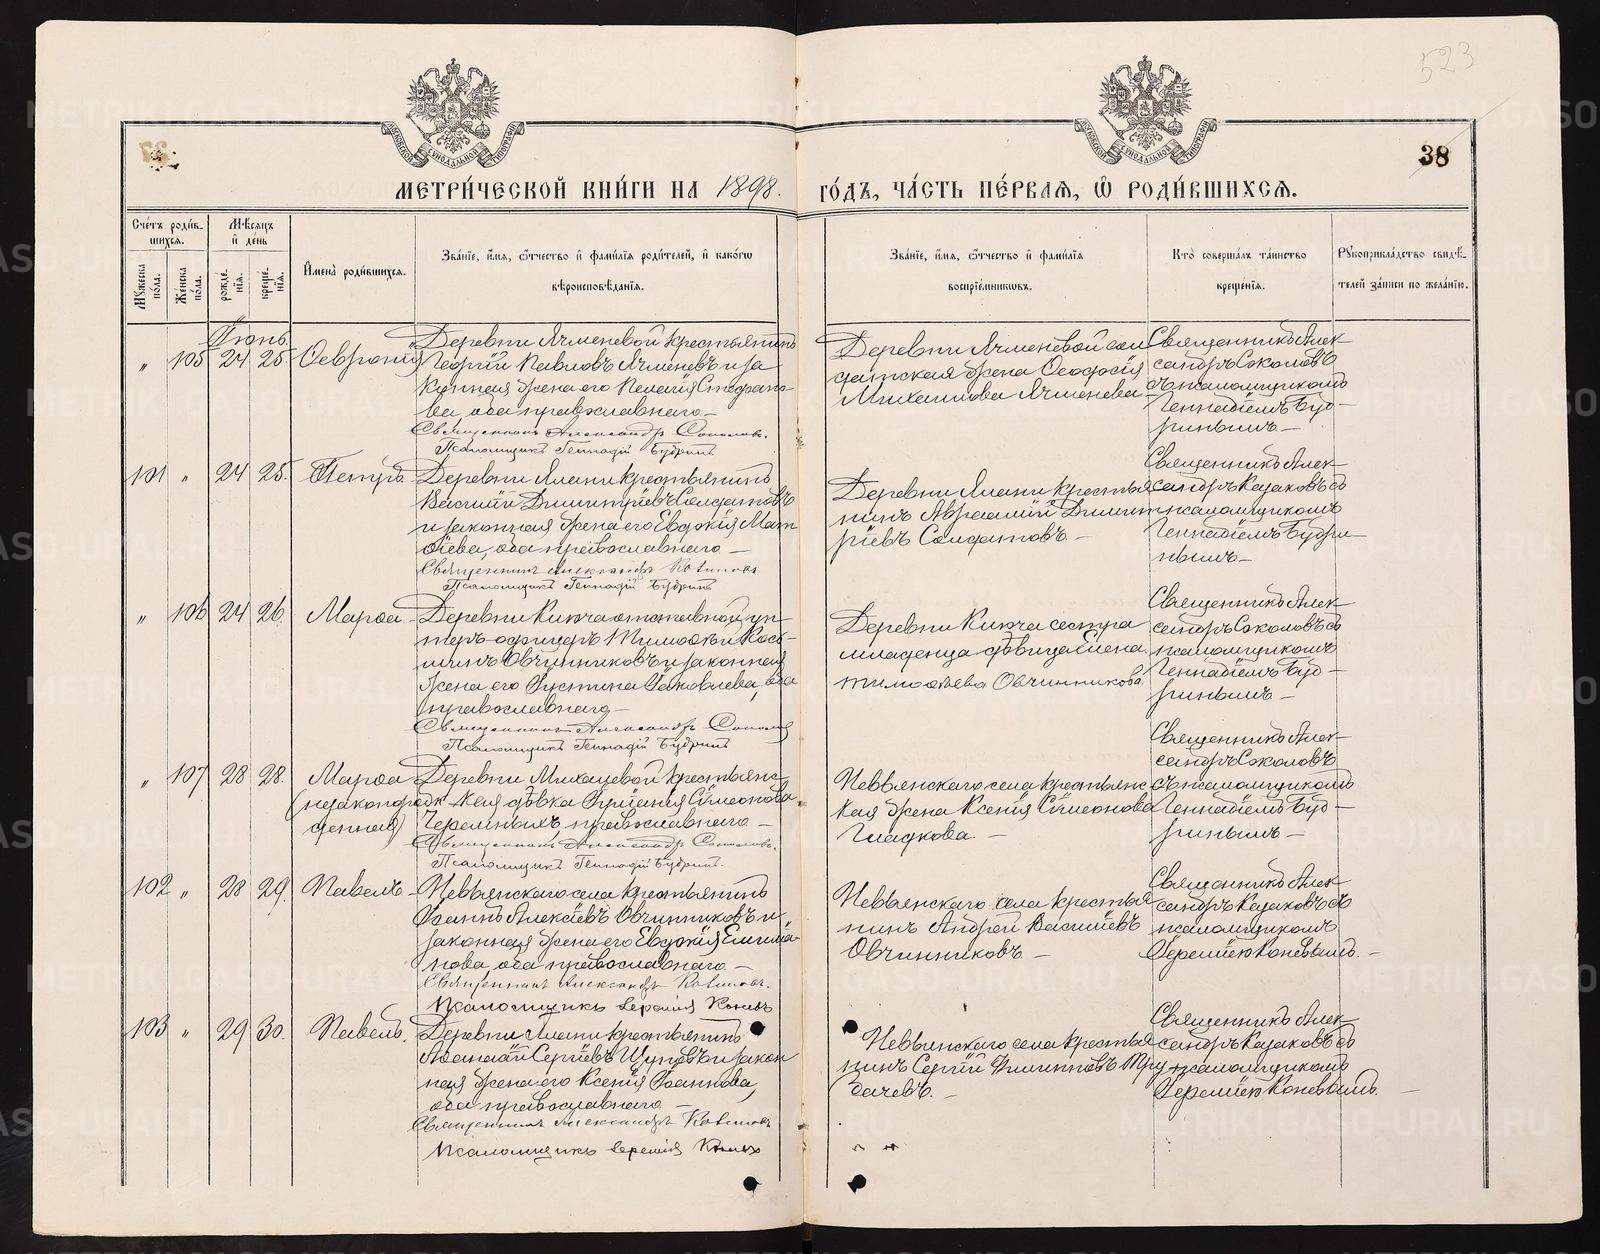 523
38
МЕТРИ́ЧЕСКОЙ КНИ́ГИ НА 1898. ГО́ДЪ, ЧА́СТЬ ПЕ́РВАЯ, Ѽ РОДИ́ВШИХСЯ.
Сче́тъ роди́в-
шихся.
Мѣ́сяцъ
и̂ де́нь
Мꙋ́жеска
по́ла.
Же́нска
по́ла.
рожде́-
нїѧ.
креще́-
нїѧ.
И̂мена̀ роди́вшихсѧ.
Зва́нїе, и̂́мѧ, ѻ҆́тчество и̂ фами́лїѧ роди́телей, и̂ како́гѡ
вѣроисповѣ́данїѧ.
Зва́нїе, и̂́мѧ, ѻ҆́тчество и̂ фами́лїѧ
воспрїе́мникѡвъ.
Кто̀ соверша́лъ та́инство
креще́нїѧ.
Рꙋкоприкла́дство свидѣ́-
телей за́писи по жела́нїю.
Іюнь.
„ 105 24 25 Февронія
Деревни Ячменевой крестьянинъ
Георгій Павловъ Ячменевъ и за
конная жена его Пелагія Стефано-
ва, оба православнаго.—
Священникъ Александръ Соколовъ.
Псаломщикъ Геннадій Будринъ
Деревни Ячменевой сол
датская жена Феодосія
Михаилова Ячменева.—
Священникъ Алек-
сандръ Соколовъ
съ псаломщикомъ
Геннадіемъ Буд-
ринымъ.—
101 „ 24 25. Петръ.
Деревни Ялани крестьянинъ
Василій Димитріевъ Солдатовъ
и законная жена его Евдокія Мат
ѳіева, оба православнаго.—
Священникъ Александръ Казаковъ
Псаломщикъ Геннадій Будринъ
Деревни Ялани крестья
нинъ Авраамій Димит
ріевъ Солдатовъ.—
Священникъ Алек-
сандръ Казаковъ съ
псаломщикомъ
Геннадіемъ Будри-
нымъ.—
„ 106 24 26. Марѳа.
Деревни отставной ун-
теръ-офицеръ Тимоѳей Кось-
минъ Овчинниковъ и законная
жена его Іустина Іаковлева, оба
православнаго.—
Священникъ Александръ Соколовъ
Псаломщикъ Геннадій Будринъ
Деревни сестра
младенца дѣвица Елена
Тимоѳеева Овчинникова.
Священникъ Алек-
сандръ Соколовъ съ
псаломщикомъ
Геннадіемъ Буд-
ринымъ.—
„ 107 28 28. Марѳа
(незаконорож-
денная)
Деревни Михалевой крестьянс-
кая дѣвка Іуліанія Сѵмеонова
Черемныхъ, православнаго.—
Священникъ Александръ Соколовъ.
Псаломщикъ Геннадій Будринъ.
Невьянскаго села крестьянс-
кая жена Ксенія Сѵмеонова
Гладкова.—
Священникъ Алек-
сандръ Соколовъ
съ псаломщикомъ
Геннадіемъ Буд-
ринымъ.—
102 „ 28 29. Павелъ.
Невьянскаго села крестьянинъ
Іоаннъ Алексіевъ Овчинниковъ и
законная жена его Евдокія Емилiа-
нова, оба православнаго.—
Священникъ Александръ Казаковъ.
Псаломщикъ Іеремія Коневъ
Невьянскаго села крестья
нинъ Андрей Василіевъ
Овчинниковъ.—
Священникъ Алек-
сандръ Казаковъ съ
псаломщикомъ
Іереміею Коневымъ.—
103 „ 29 30. Павелъ.
Деревни Ялани крестьянинъ
Аѳанасій Сергіевъ и закон
ная жена его Ксенія Іоаннова,
оба православнаго.—
Священникъ Александръ Казаковъ
Псаломщикъ Іеремія Коневъ
Невьянскаго села крестья
нинъ Сергій Филипповъ Тру
бачевъ.—
Священникъ Алек-
сандръ Казаковъ съ
псаломщикомъ
Іереміею Коневымъ.—
METRIKI.GASO-URAL.RU